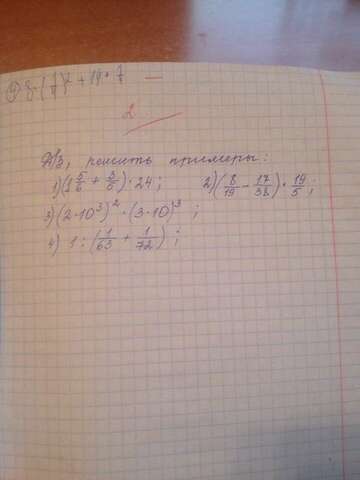 2
Д/З, решить примеры:
1) (1 5/6 + 3/5) · 24; 2) (8/19 - 17/38) · 19/5;
3) (2·10³)² · (3·10)³;
4) 1 : (1/63 + 1/72);